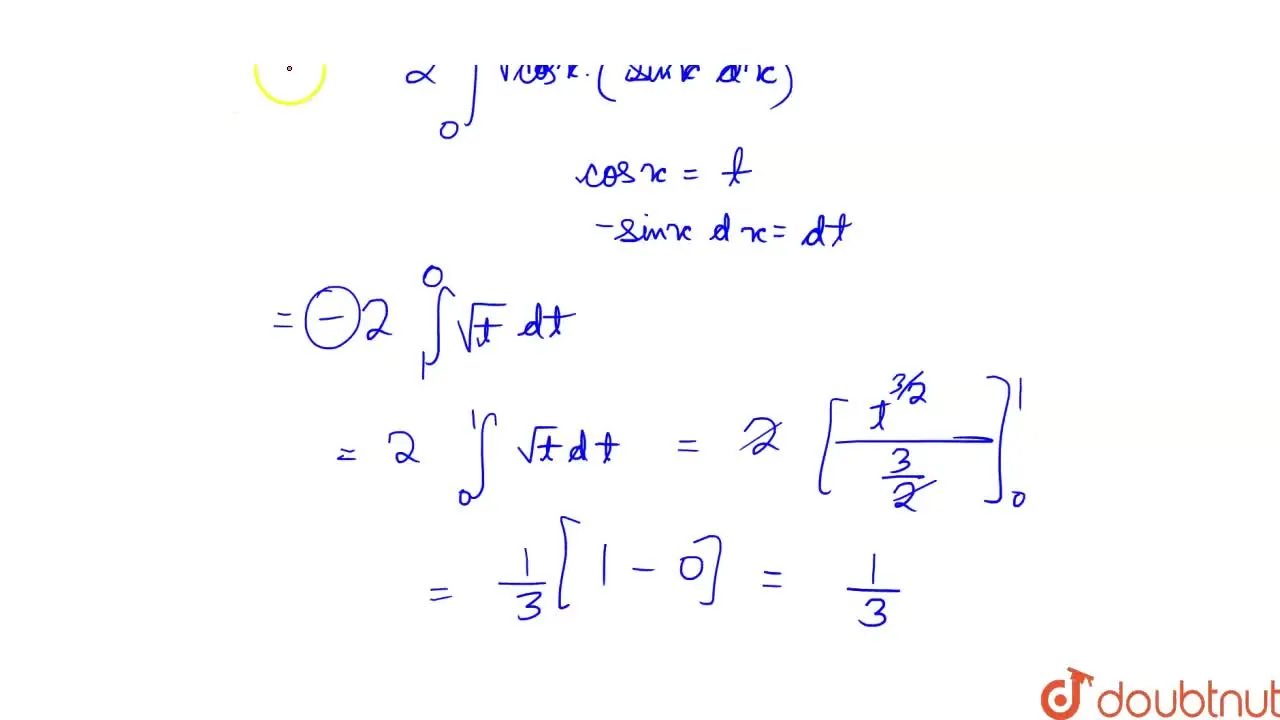 2 ∫₀ √cosx. (sinx dx)
cosx = t
-sinx dx = dt
= -2 ∫₁⁰ √t dt
= 2 ∫₀¹ √t dt = 2 [t^(3/2) / (3/2)]₀¹
= 1/3 [1 - 0] = 1/3
doubtnut